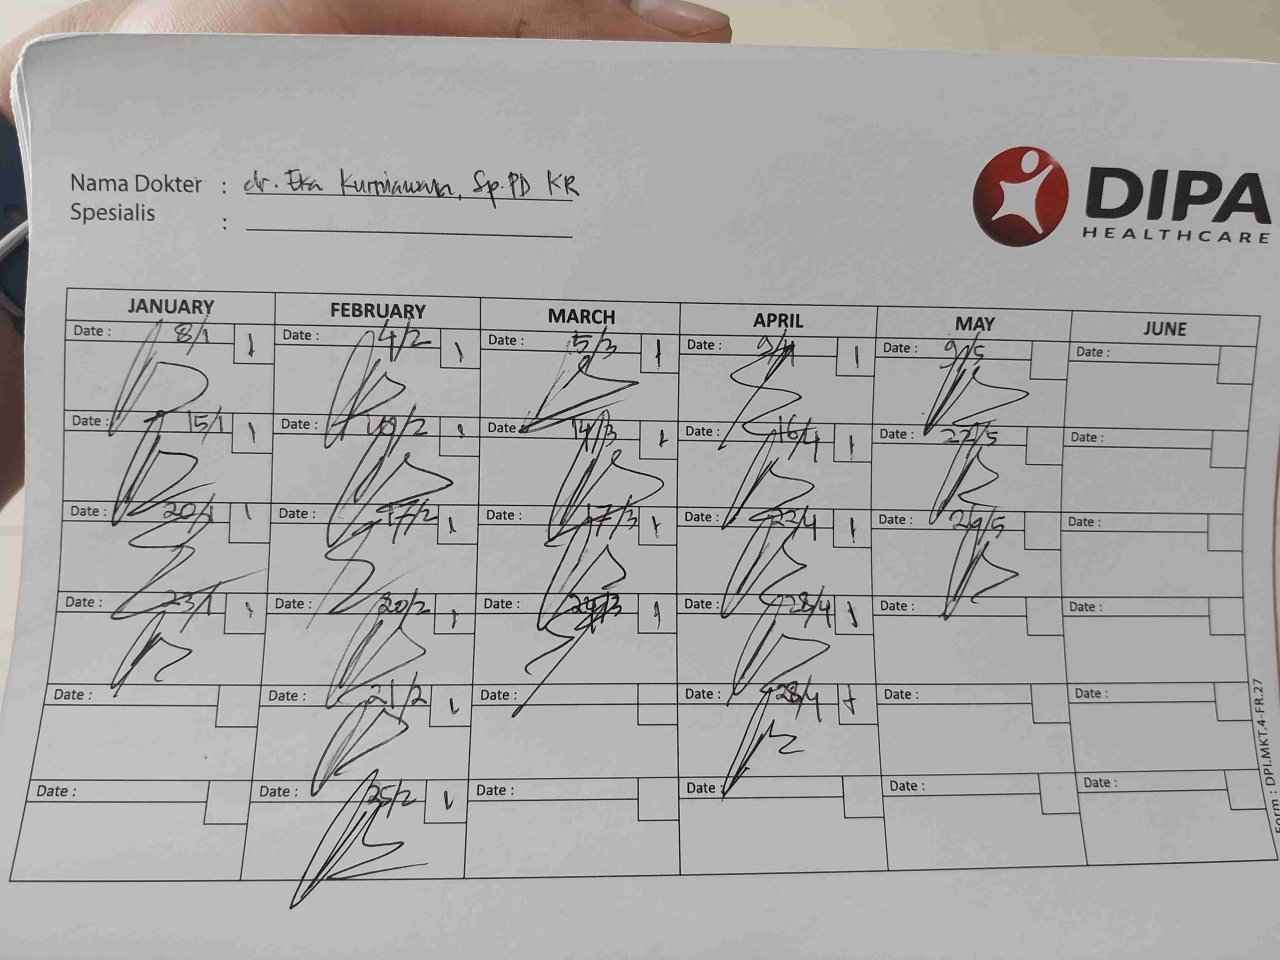 Nama Dokter : dr. Eka Kurniawan, Sp.PD KR
Spesialis :
DIPA
HEALTHCARE
JANUARY FEBRUARY MARCH APRIL MAY JUNE
Date : 8/1 1 Date : 4/2 1 Date : 5/3 1 Date : 9/4 1 Date : 9/5 Date :
Date : 15/1 1 Date : 10/2 1 Date : 14/3 1 Date : 16/4 1 Date : 22/5 Date :
Date : 20/1 1 Date : 17/2 1 Date : 17/3 1 Date : 22/4 1 Date : 29/5 Date :
Date : 23/1 1 Date : 20/2 1 Date : 1 Date : 28/4 1 Date : Date :
Date : Date : 21/2 1 Date : Date : 28/4 Date : Date :
Date : Date : 25/2 1 Date : Date : Date : Date :
Form : DPI.MKT.4-FR.27